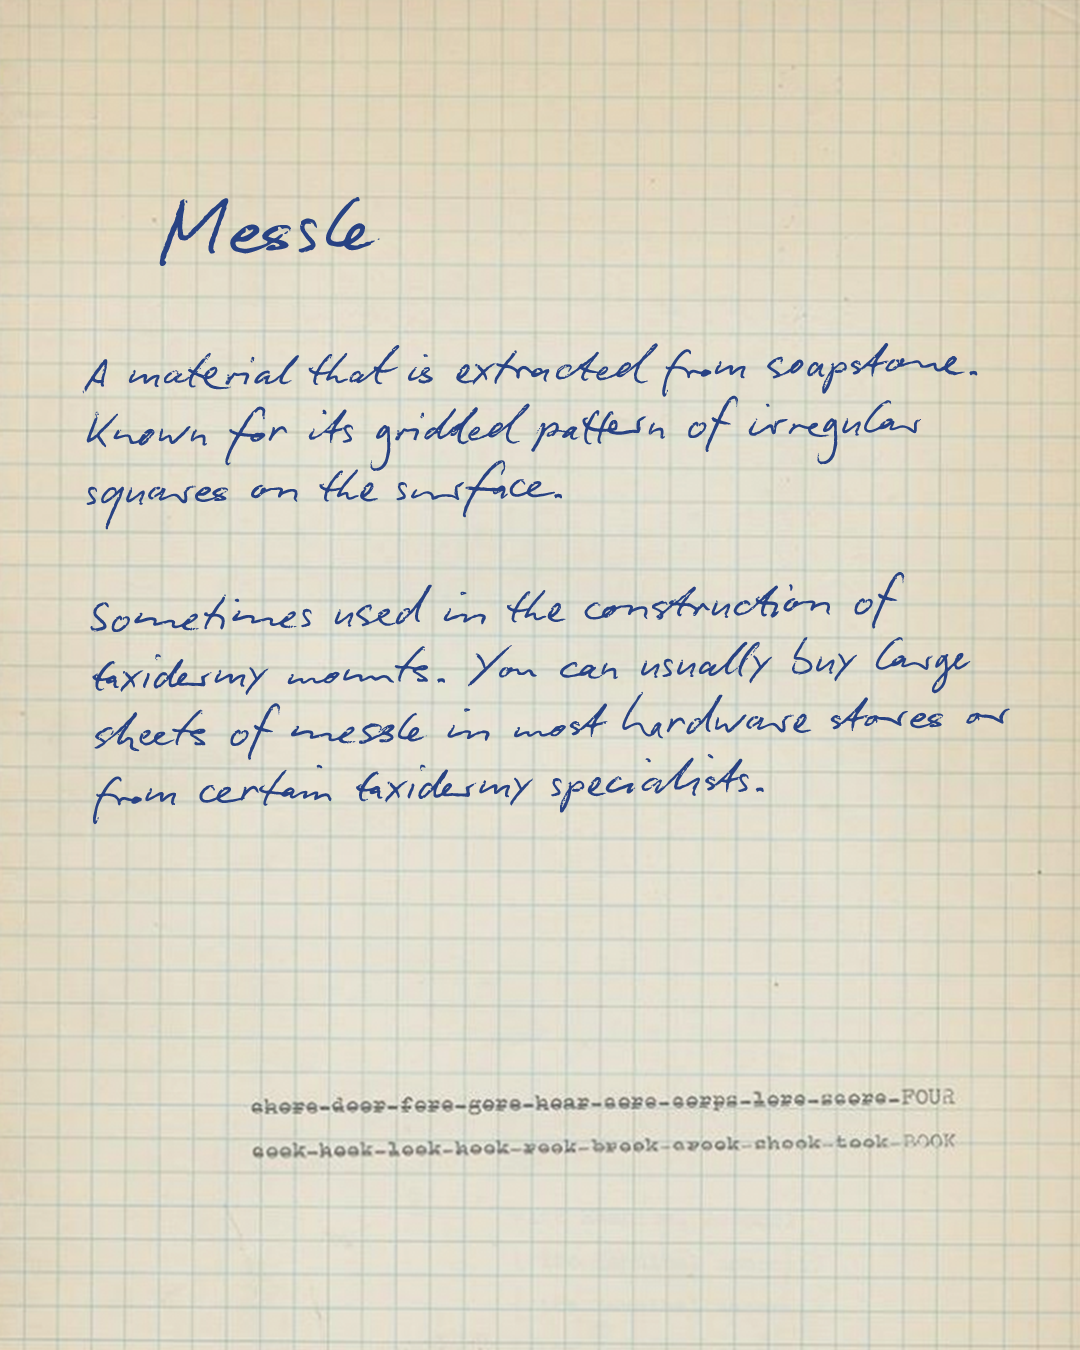 Messle
A material that is extracted from soapstone.
Known for its gridded pattern of irregular
squares on the surface.
Sometimes used in the construction of
taxidermy mounts. You can usually buy large
sheets of messle in most hardware stores or
from certain taxidermy specialists.
chore-door-fore-gore-hoar-sore-corps-lore-score-FOUR
cook-hook-look-hook-rook-brook-crook-shook-took-BOOK